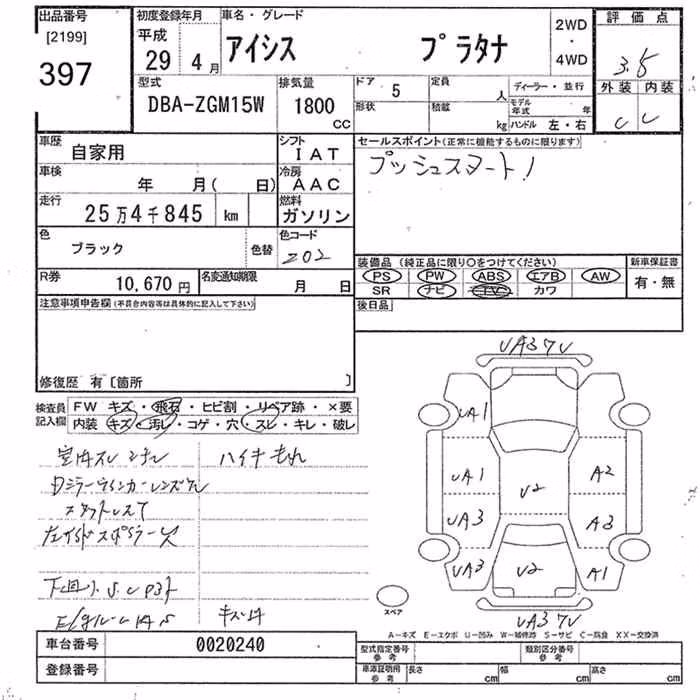 出品番号 初度登録年月 車名・グレード 評価点
[2199] 平成 29 4月 アイシス プラタナ 2WD・4WD 3.5
397
型式 排気量 ドア 5 定員 人 ディーラー・並行 外装 内装
DBA-ZGM15W 1800 CC 形状 積載 kg モデル年式 年 ハンドル 左・右 C C
車歴 自家用 シフト IAT セールスポイント(正常に機能するものに限ります)
車検 年 月( 日) 冷房 AAC プッシュスタート!
走行 25万4千845 km 燃料 ガソリン
色 ブラック 色替 色コード 202
装備品(純正品に限り○をつけてください) 新車保証書
R券 10,670円 名変通知期限 月 日 PS PW ABS エアB AW 有・無
SR ナビ TV カワ
注意事項申告欄(不具合内容等は具体的に記入して下さい) 後日品
修復歴 有〔箇所 〕
検査員記入欄 FW キズ・飛石・ヒビ割・リペア跡・×要
内装 キズ・汚レ・コゲ・穴・スレ・キレ・破レ
UA37U
UA1
UA1 A2
U2
UA3 A3
UA3 U2 A1
UA37U
スペア
A-キズ E-エクボ U-凹み W-補修跡 S-サビ C-腐食 XX-交換済
車台番号 0020240 型式指定番号 参考 類別区分番号 参考
登録番号 車庫証明用 参考 長さ cm 幅 cm 高さ cm